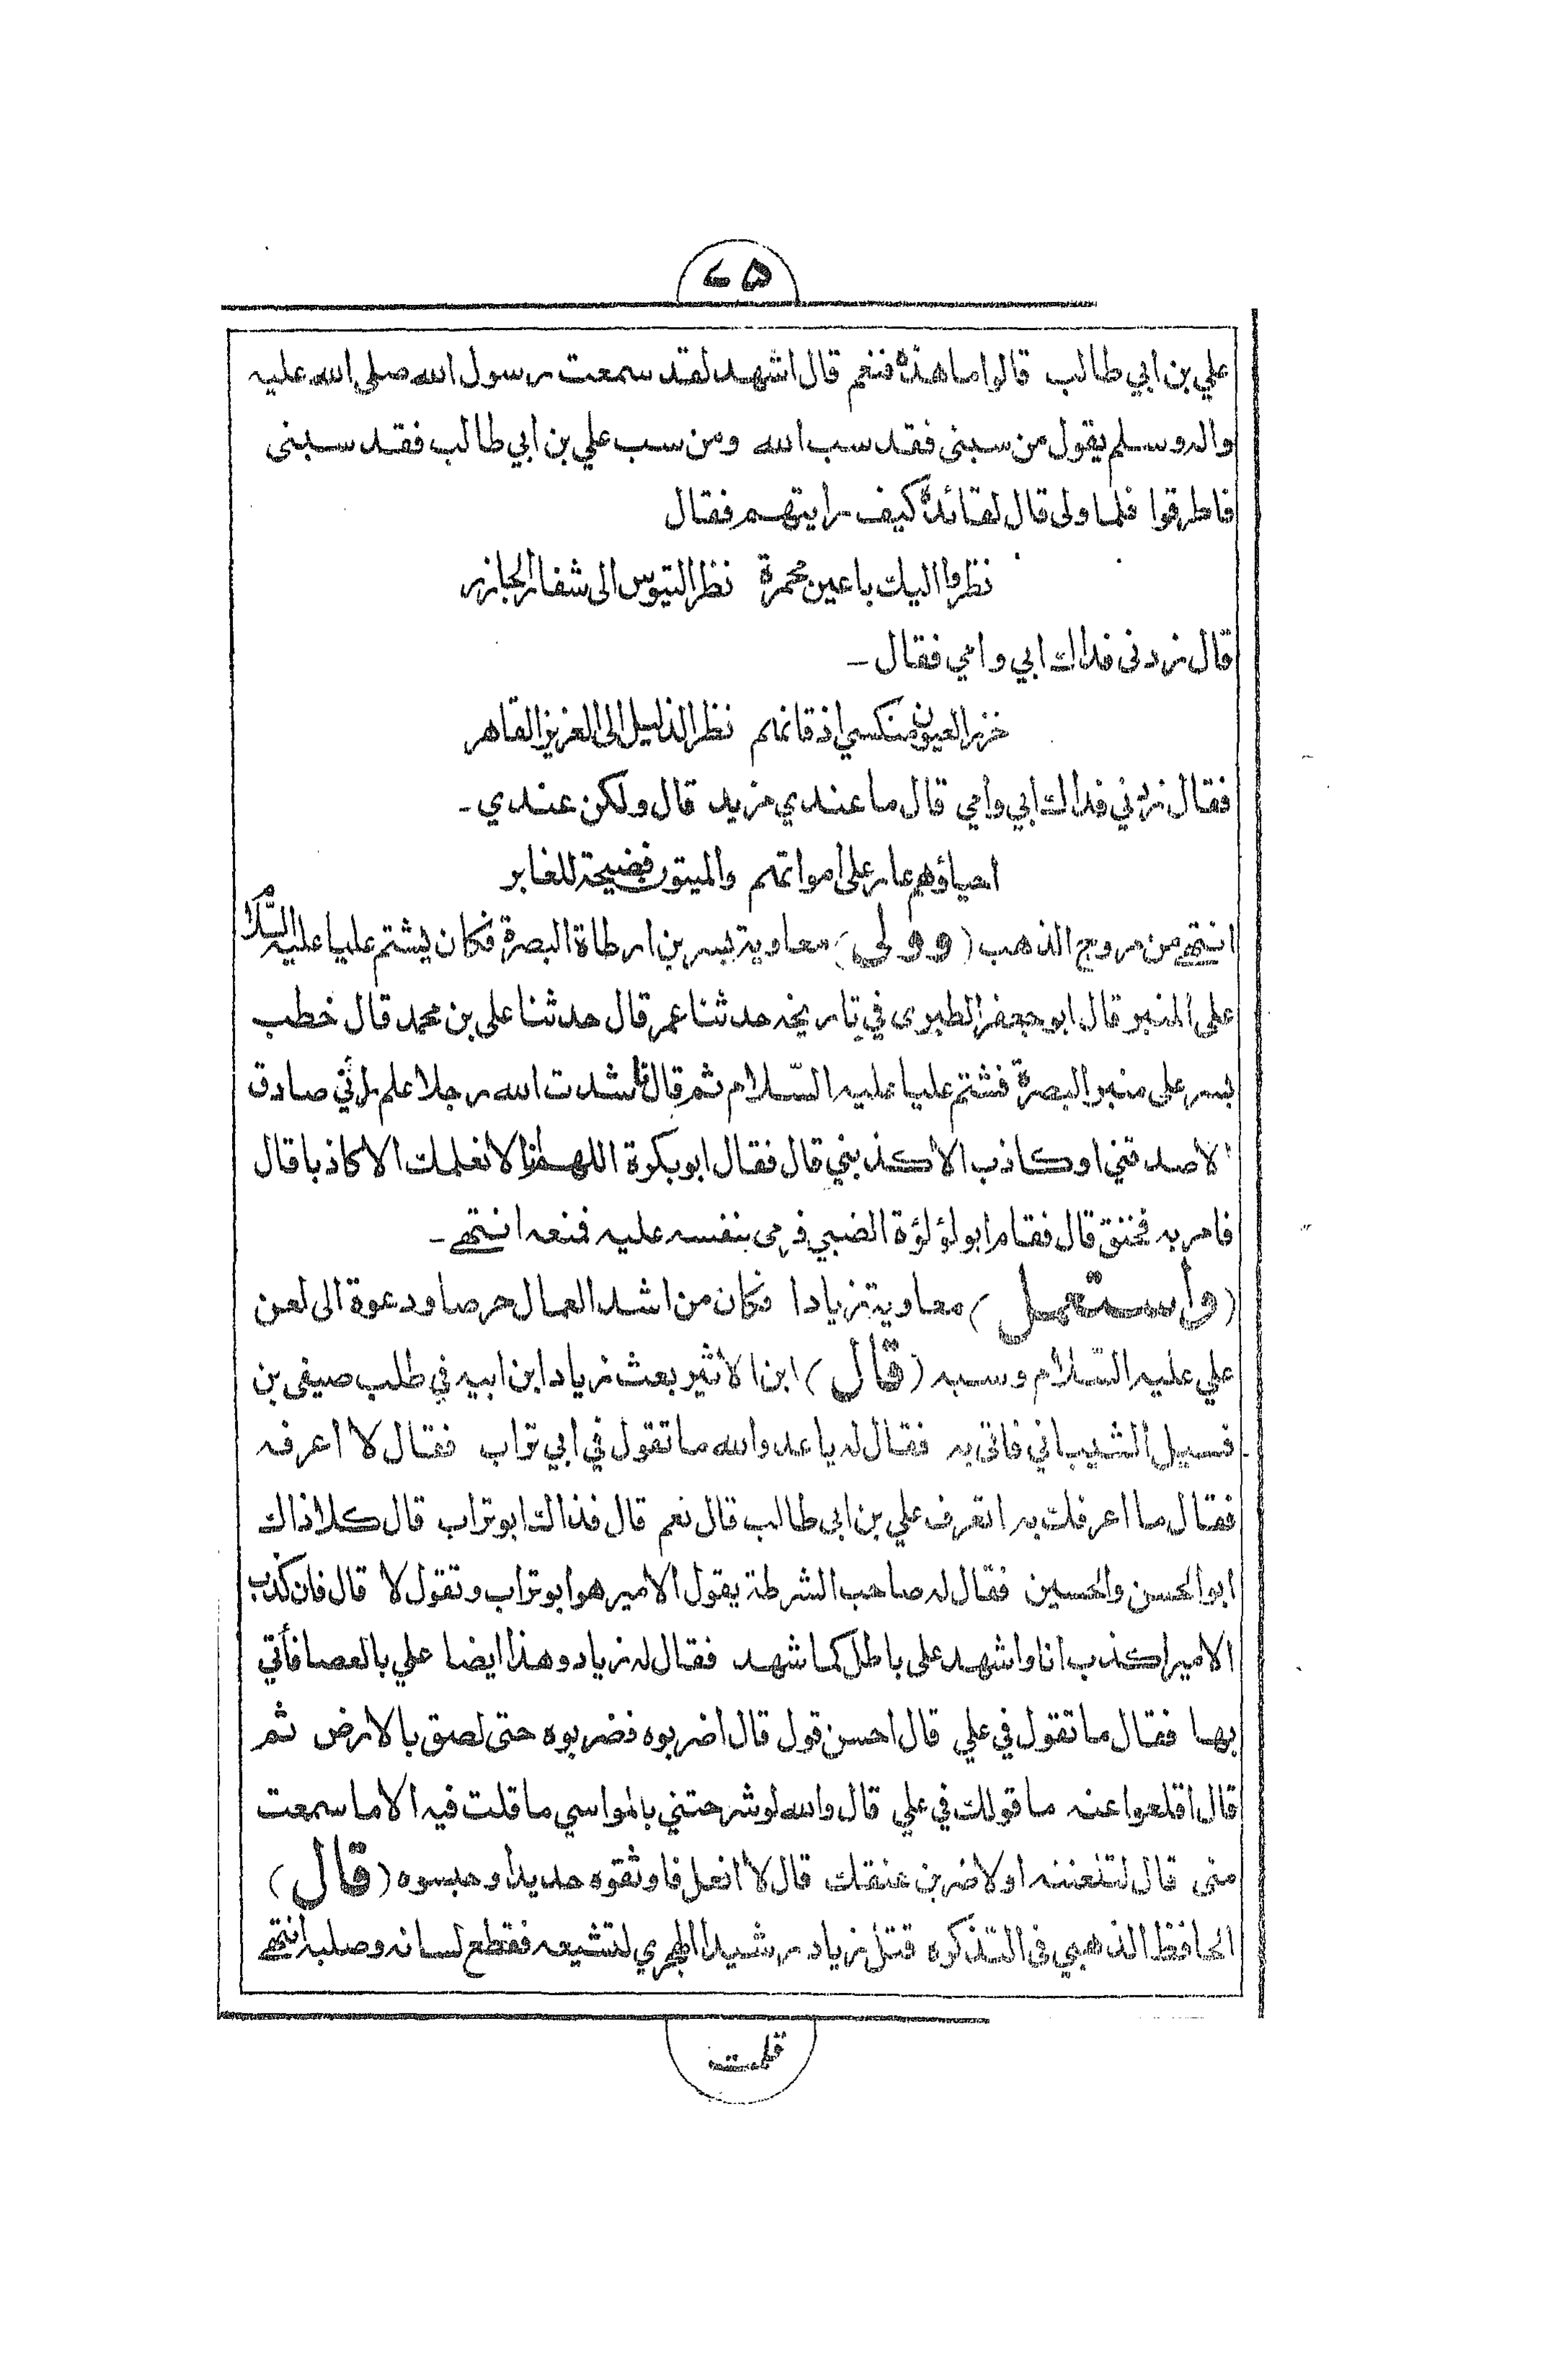 ٧٥
علي بن ابي طالب قالوا اما هذه فنعم قال اشهد لقد سمعت رسول الله صلى الله عليه
واله وسلم يقول من سبنى فقد سب الله ومن سب علي بن ابي طالب فقد سبنى
فاطرقوا فلما ولى قال لقائده كيف رايتهم فقال
نظروا اليك باعين محمرة نظر التيوس الى شفار الجازر
قال زدنى فداك ابي وامي فقال ـ
خزر العيون منكسي اذقانهم نظر الذليل الى العزيز القاهر
فقال زدني فداك ابي وامي قال ما عندي مزيد قال ولكن عندي ـ
احياؤهم عار على امواتهم والميتون فضيحة للغابر
انتهى من مروج الذهب (وولى) معاوية بسر بن ارطاة البصرة فكان يشتم عليا عليه السّلام
على المنبر قال ابو جعفر الطبرى في تاريخه حدثنا عمر قال حدثنا على بن محمد قال خطب
بسر على منبر البصرة فشتم عليا عليه السّلام ثم قال ناشدت الله رجلا علم اني صادق
الا صدقني او كاذب الا كذبني قال فقال ابو بكرة اللهم انا لا نعلمك الا كاذبا قال
فامر به فخنق قال فقام ابو لؤلؤة الضبي فرمى بنفسه عليه فمنعه انتهى ـ
(واستعمل) معاوية زيادا فكان من اشد العمال حرصا ودعوة الى لعن
علي عليه السّلام وسبه (قال) ابن الاثير بعث زياد ابن ابيه في طلب صيفى بن
فسيل الشيباني فاتى به فقال له يا عدو الله ما تقول في ابي تراب فقال لا اعرفه
فقال ما اعرفك به اتعرف علي بن ابى طالب قال نعم قال فذاك ابو تراب قال كلا ذاك
ابو الحسن والحسين فقال له صاحب الشرطة يقول الامير هو ابو تراب وتقول لا قال فان كذب
الامير اكذب انا واشهد على باطل كما شهد فقال له زياد وهذا ايضا علي بالعصا فأتي
بها فقال ما تقول في علي قال احسن قول قال اضربوه فضربوه حتى لصق بالارض ثم
قال اقلعوا عنه ما قولك في علي قال والله لو شرحتني بالمواسي ما قلت فيه الا ما سمعت
منى قال لتلعننه او لاضربن عنقك قال لا افعل فاوثقوه حديدا وحبسوه (قال)
الحافظ الذهبي فى التذكره قتل زياد رشيدا الهجري لتشيعه فقطع لسانه وصلبه انتهى
قلت